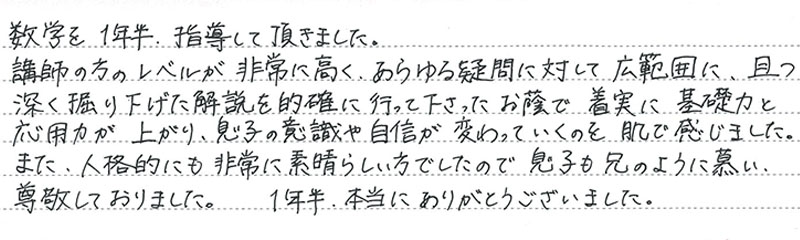 数学を 1年半、指導して頂きました。
講師の方のレベルが 非常に高く、あらゆる疑問に対して 広範囲に、且つ
深く掘り下げた解説を的確に 行って下さった お蔭で 着実に 基礎力と
応用力が 上がり、息子の意識や自信が 変わっていくのを 肌で感じました。
また、人格的にも非常に素晴らしい方でしたので 息子も兄のように慕い、
尊敬しておりました。 1年半、本当にありがとうございました。